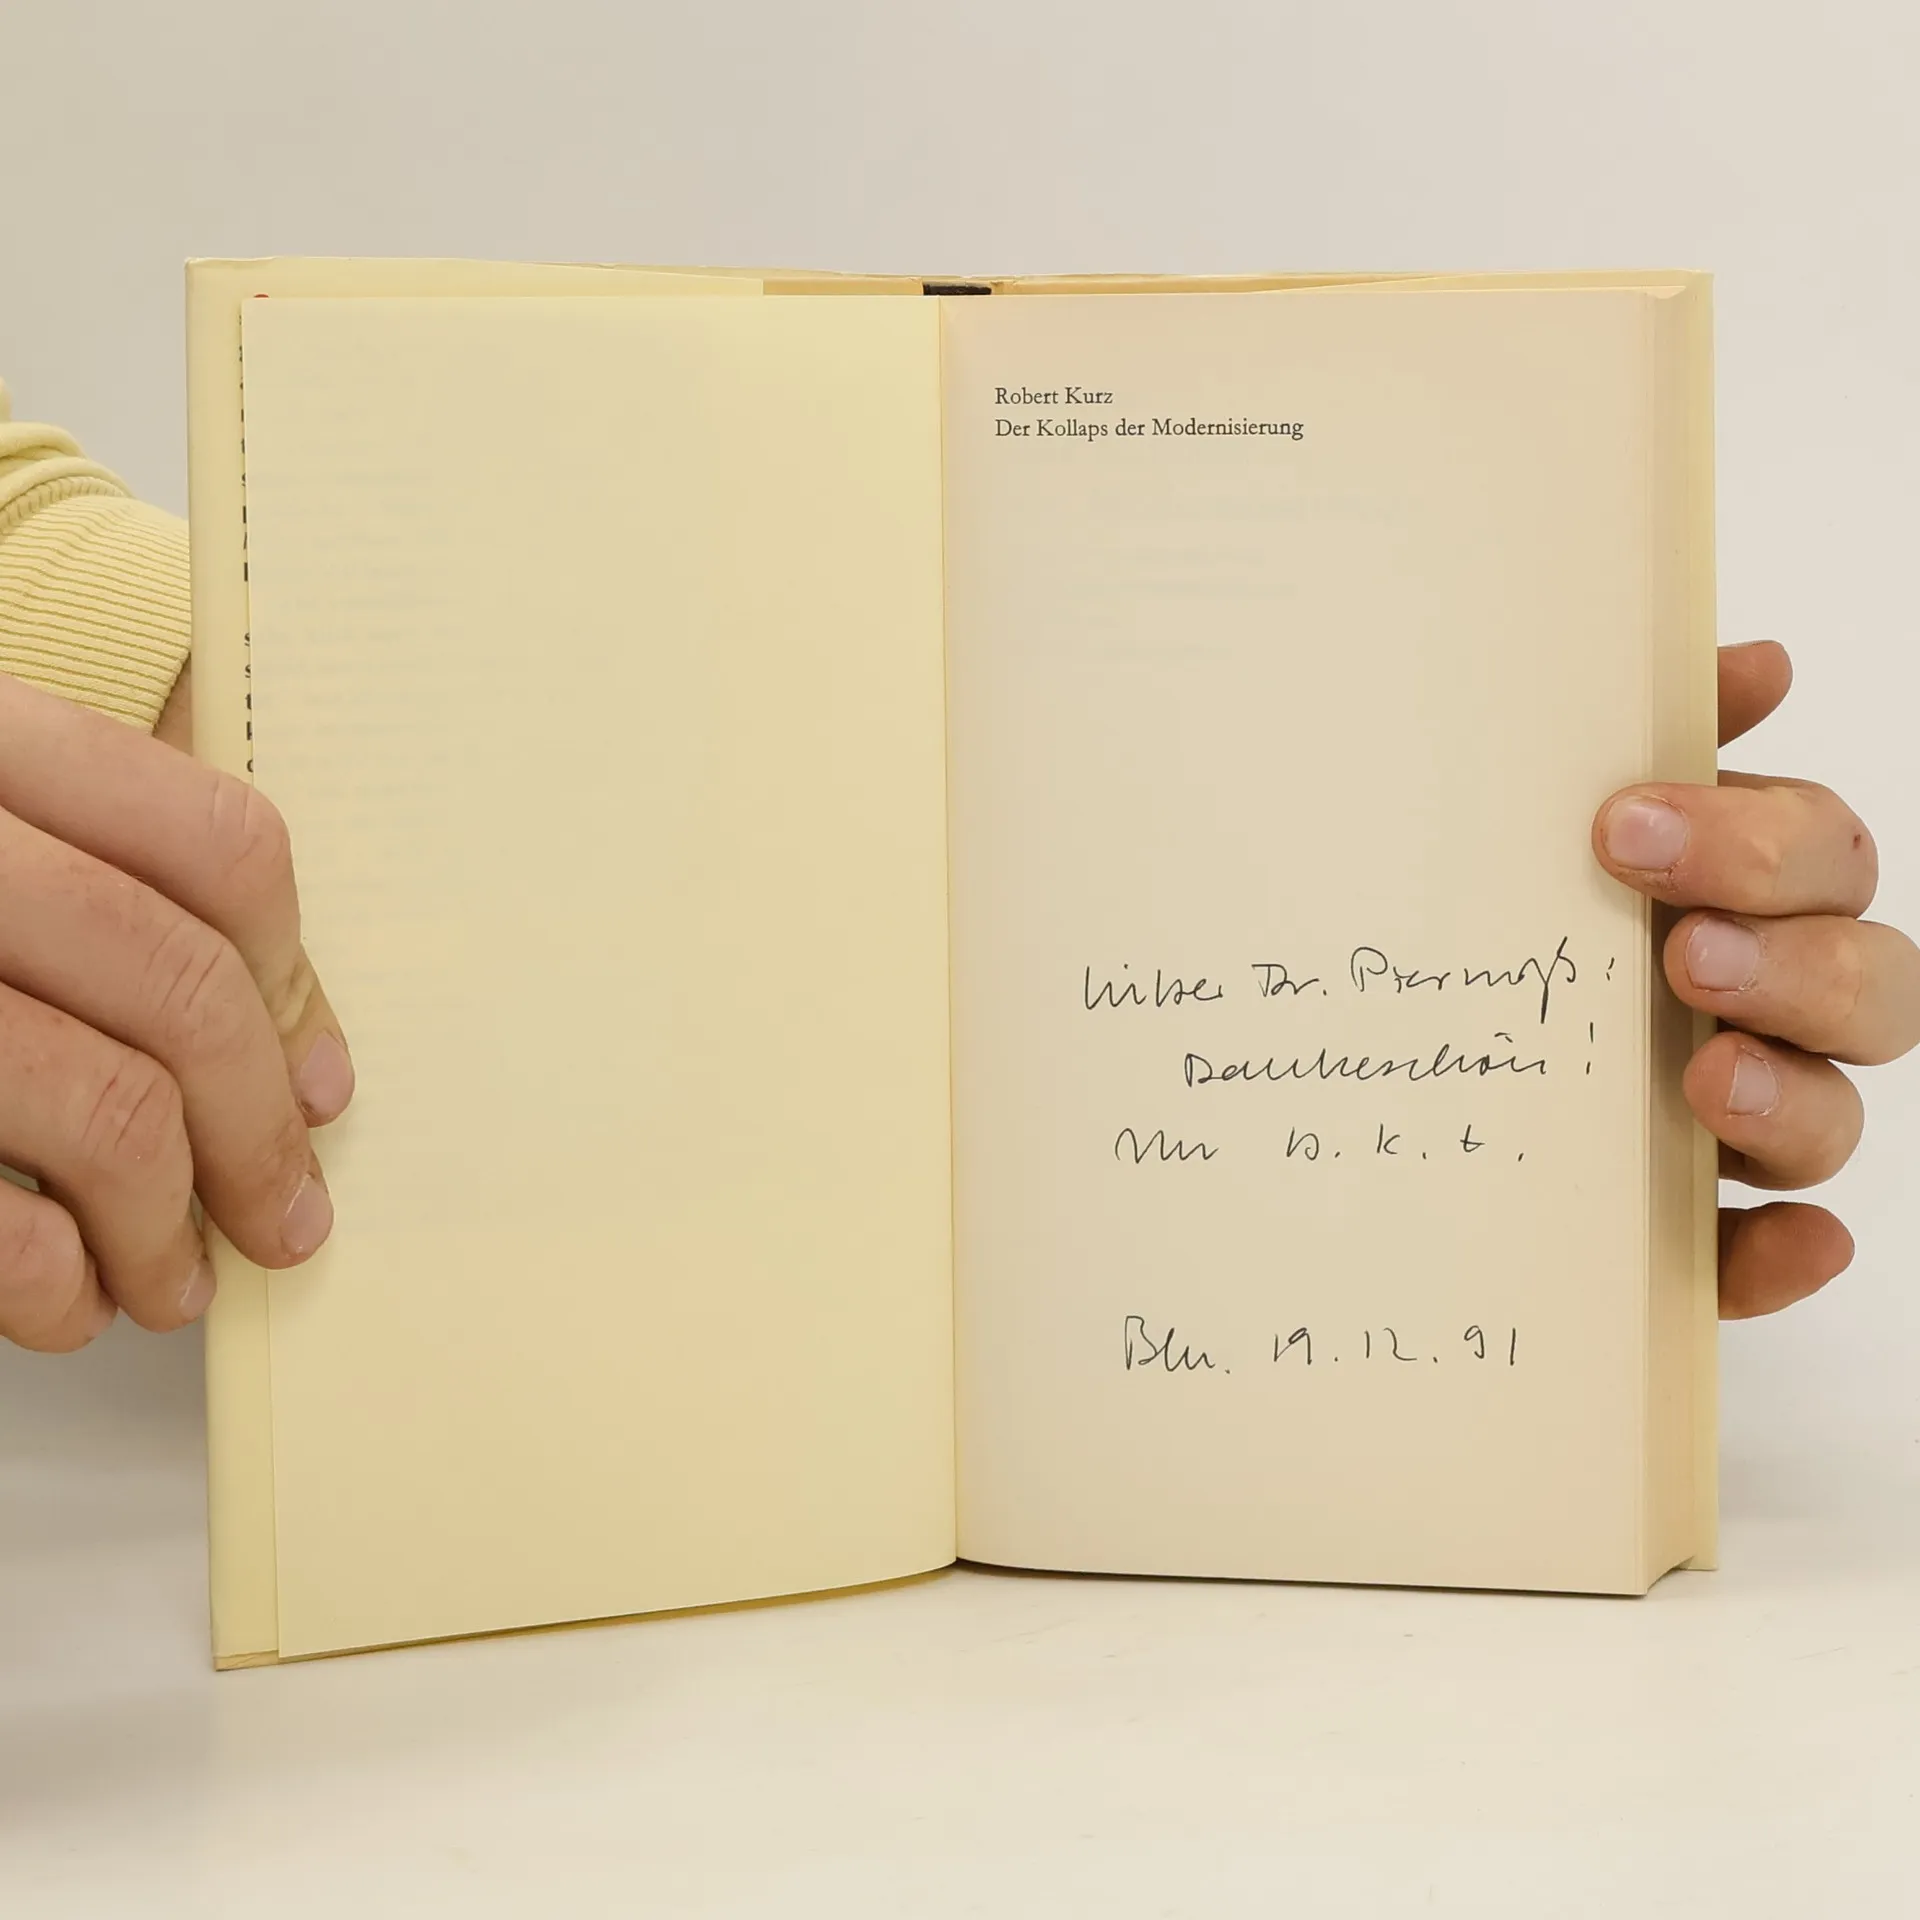 Robert Kurz
Der Kollaps der Modernisierung
Lieber Dr.
Dankeschön!
Bln. 19.12.91